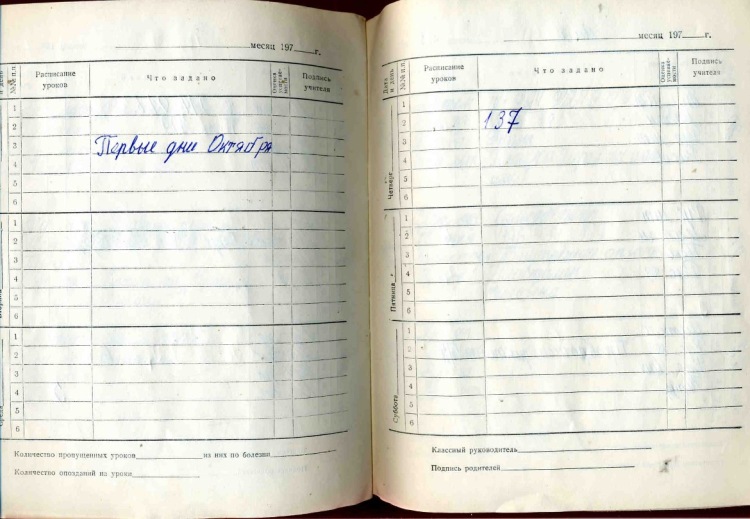 месяц 197 г.
№№ п.п.
Расписание уроков
Что задано
Оценка успевае-мости
Подпись учителя
1
2
3 Первые дни Октября
4
5
6
1
2
3
4
5
6
1
2
3
4
5
6
Количество пропущенных уроков из них по болезни
Количество опозданий на уроки
месяц 197 г.
Дата и день
№№ п.п.
Расписание уроков
Что задано
Оценка успевае-мости
Подпись учителя
Четверг
1
2 137
3
4
5
6
Пятница
1
2
3
4
5
6
Суббота
1
2
3
4
5
6
Классный руководитель
Подпись родителей